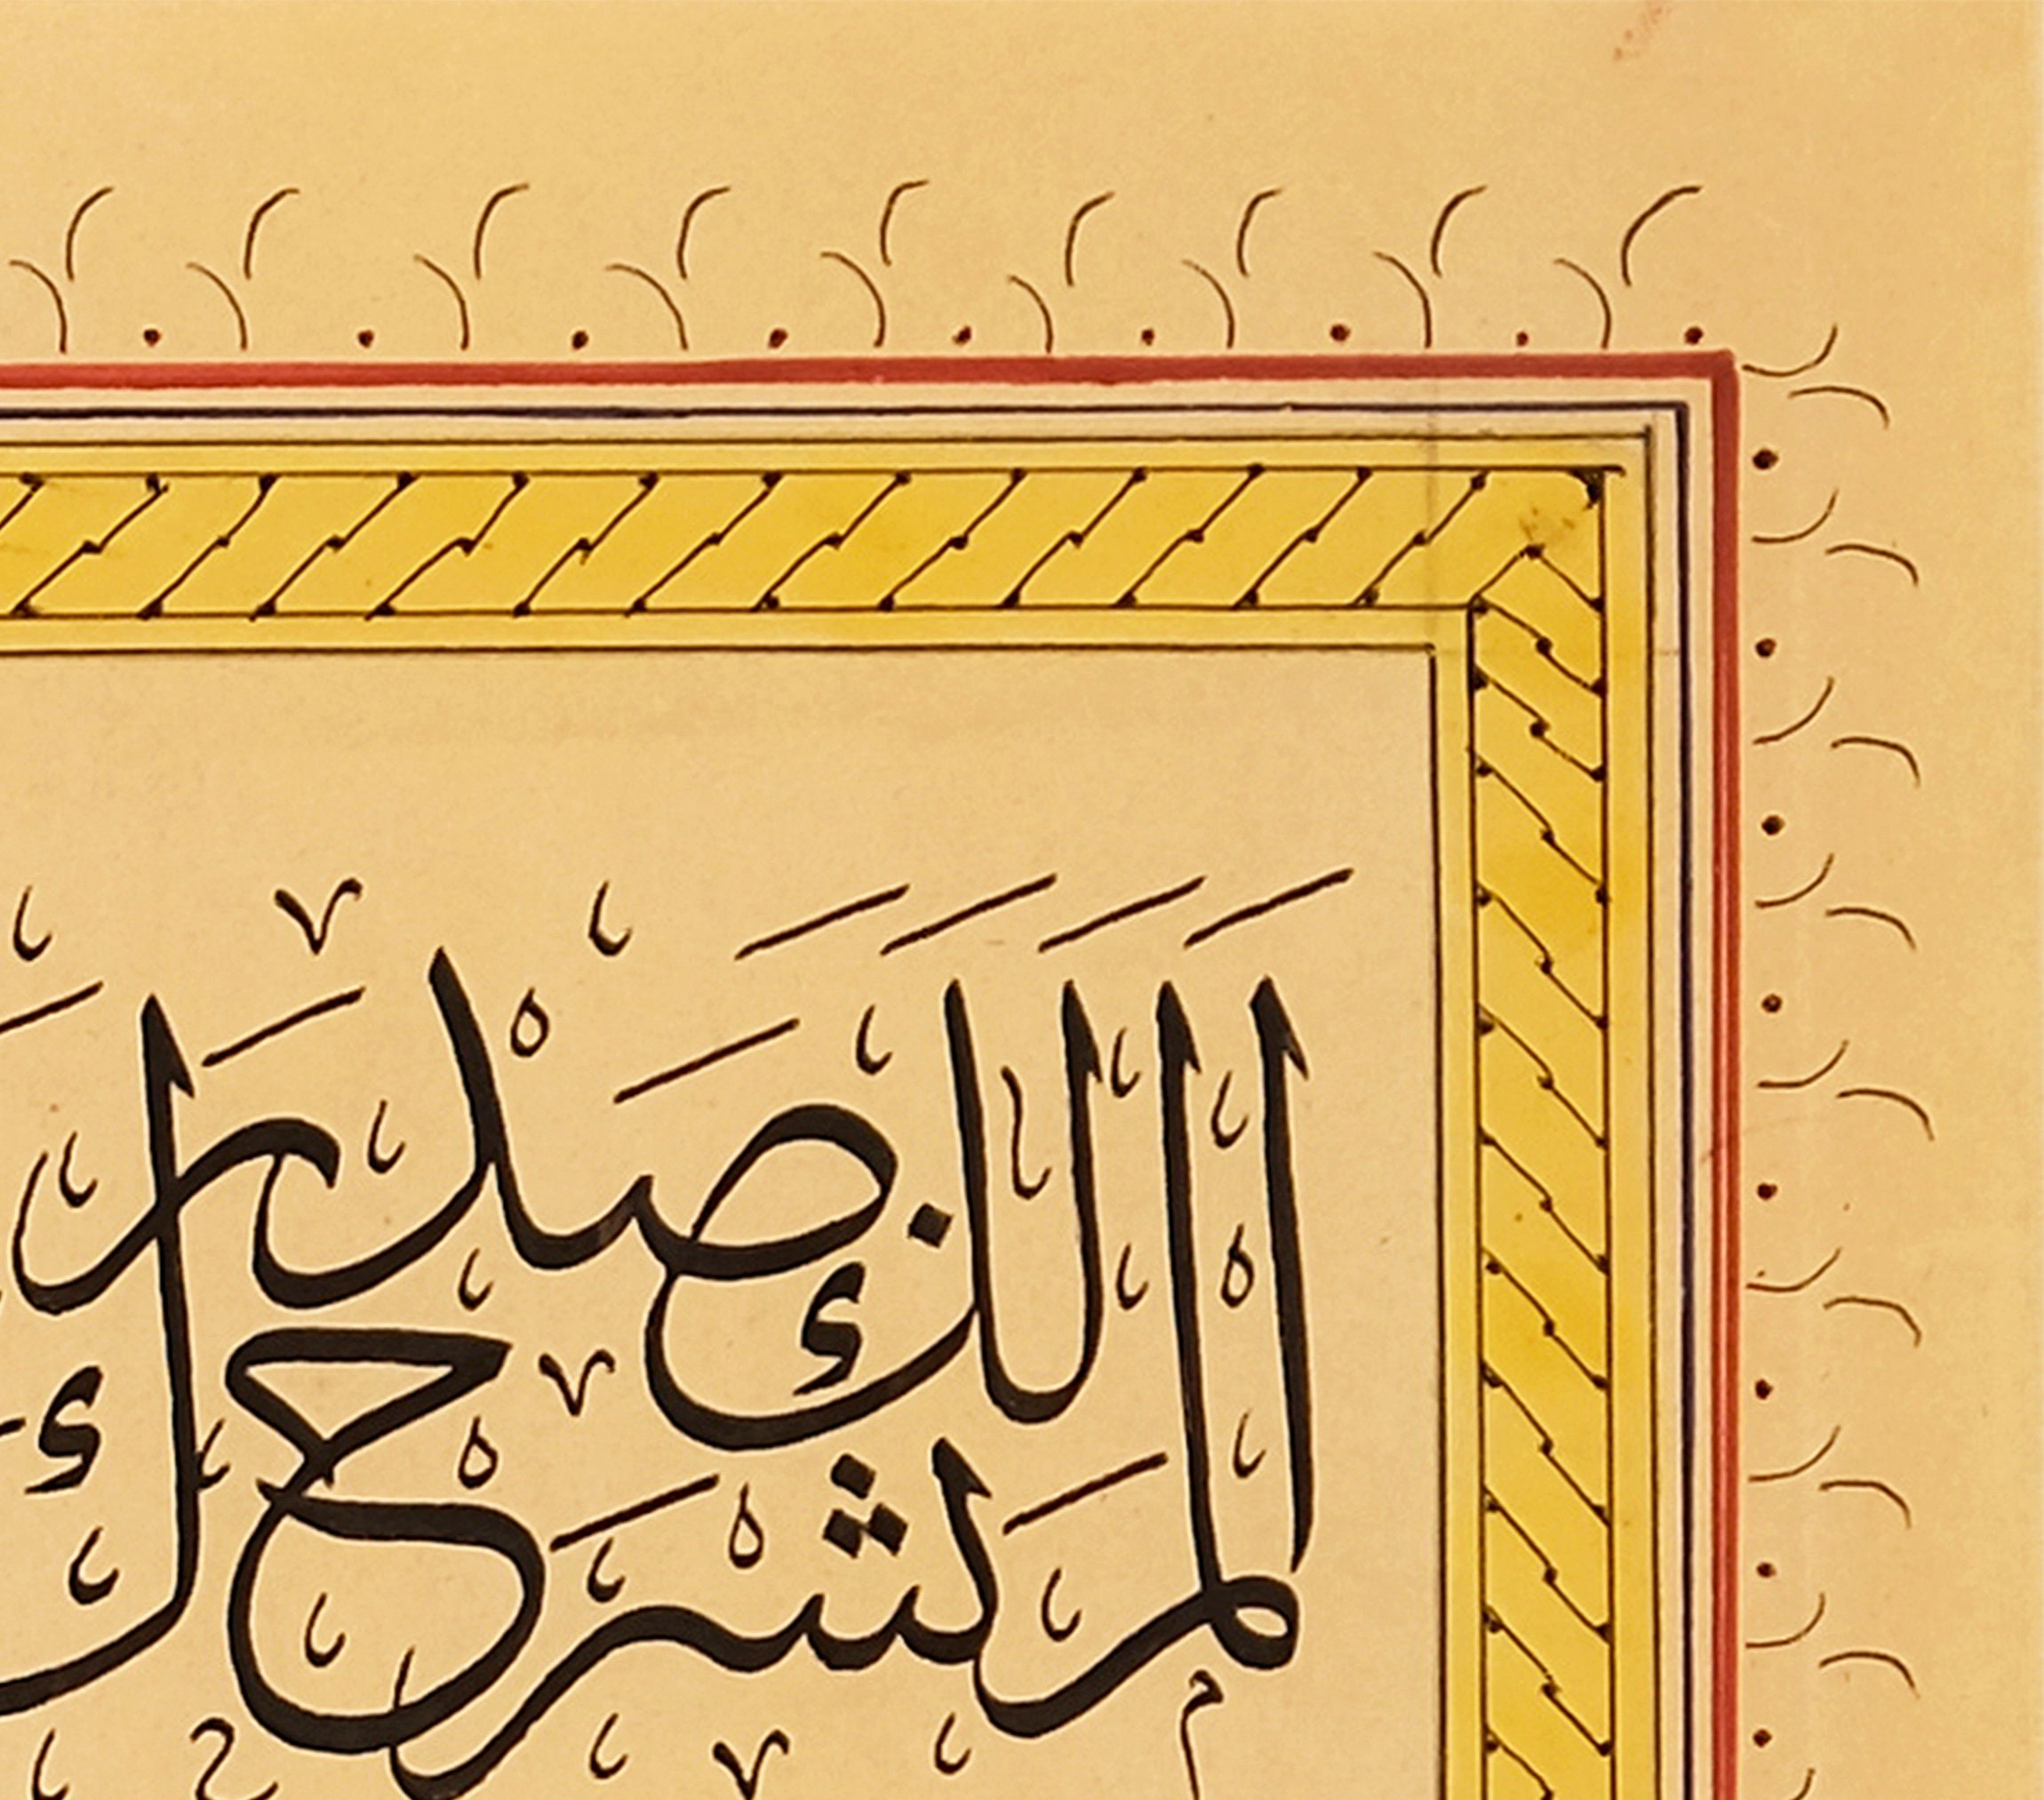 اَلَمْ نَشْرَحْ لَكَ صَدْرَكَ